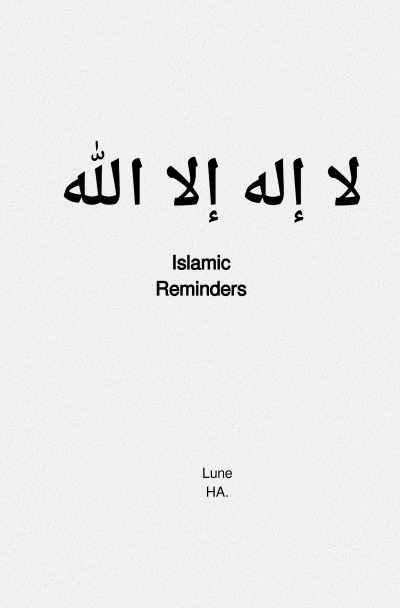 لا إله إلا الله
Islamic
Reminders
Lune
HA.